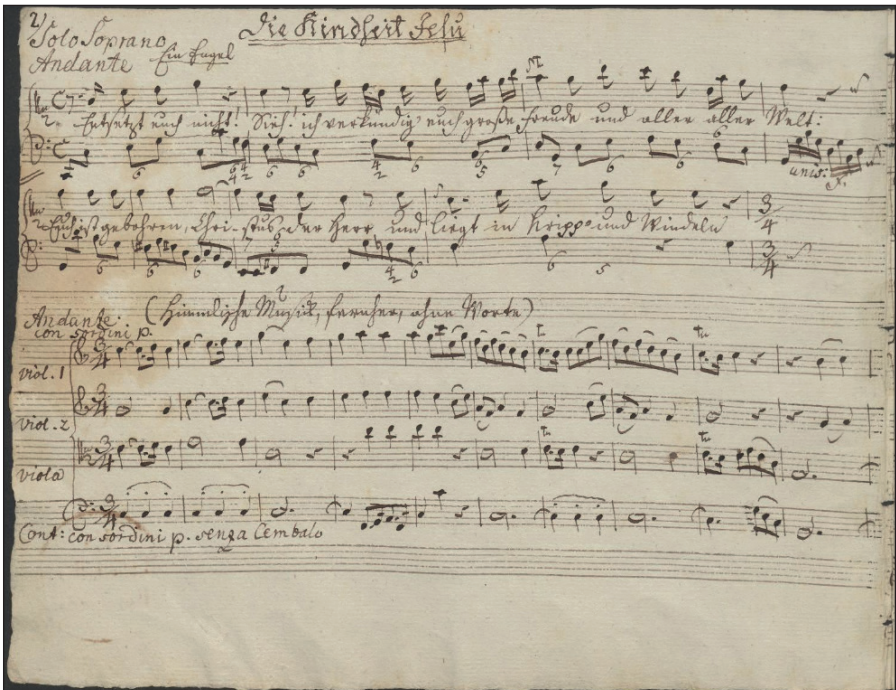 2
Die Kindheit Jesu
Solo Soprano
Andante Ein Engel
Entsetzt euch nicht! Sieh! ich verkündig' euch große Freude und aller aller Welt:
unis:
Euch ist gebohren, Christus, der Herr, und liegt in Kripp' und Windeln
Andante. (Himmlische Musik, fernher, ohne Worte)
con sordini p.
viol. 1
viol. 2
viola
Cont: con sordini p. senza Cembalo